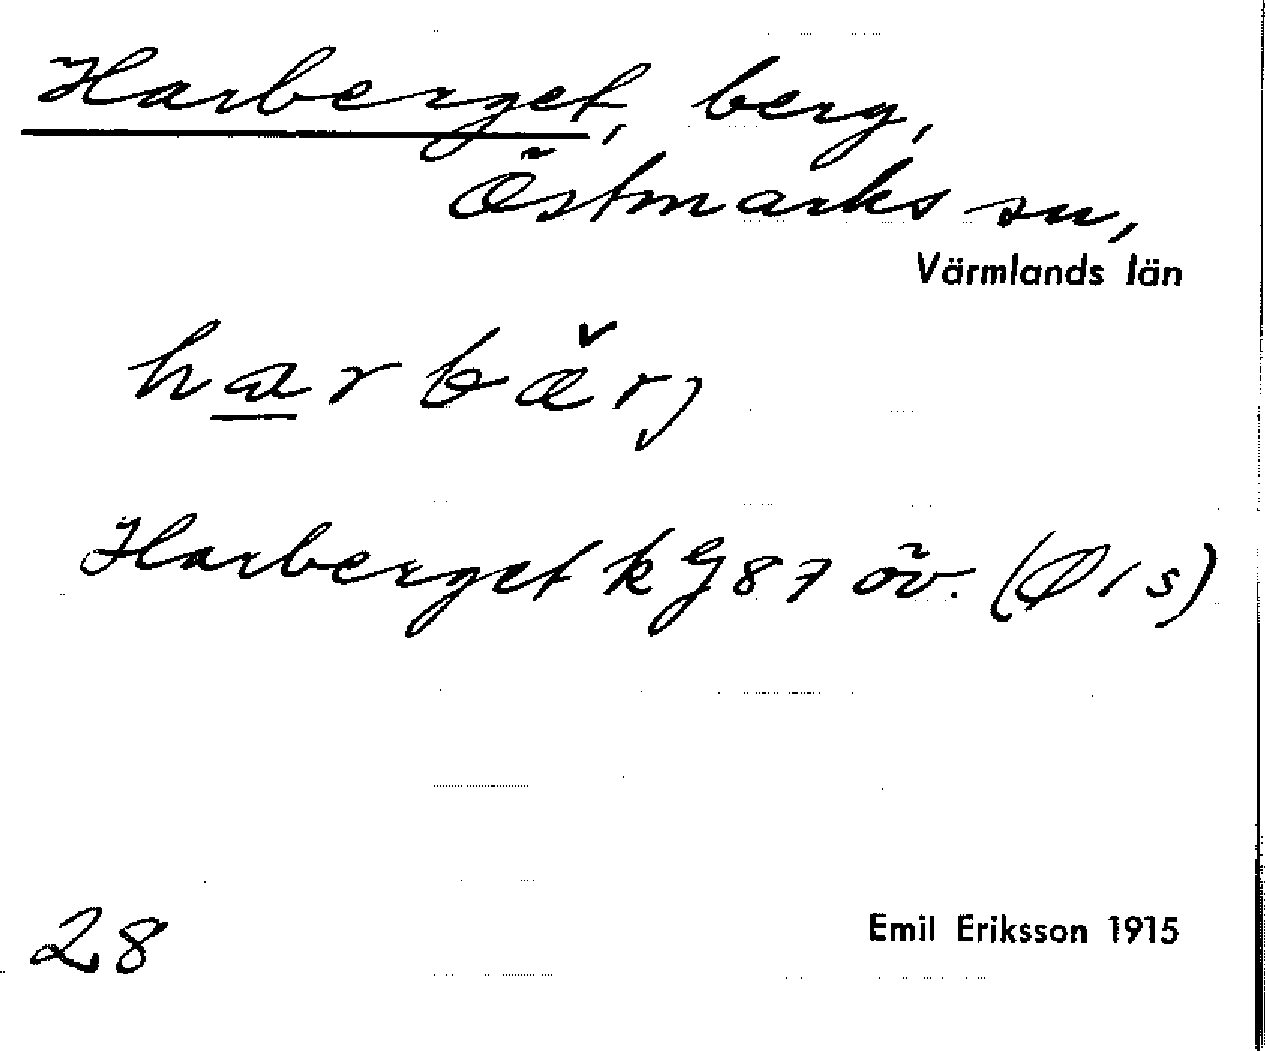 Harberget, berg,
Östmarks sn,
Värmlands län
harbär̆j
Harberget k G 87 öv. (Ø 1 s)
28
Emil Eriksson 1915